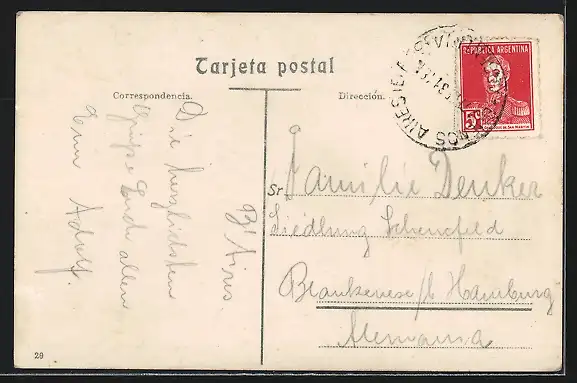 Tarjeta postal
Correspondencia.
Dirección.
REPUBLICA ARGENTINA
5c
BUENOS AIRES
B' Aires.
Die herzlichsten
Grüsse Euch allen
Adolf.
Sr. Familie Denker
Siedlung Schenefeld
Blankenese b/ Hamburg
Alemania
29